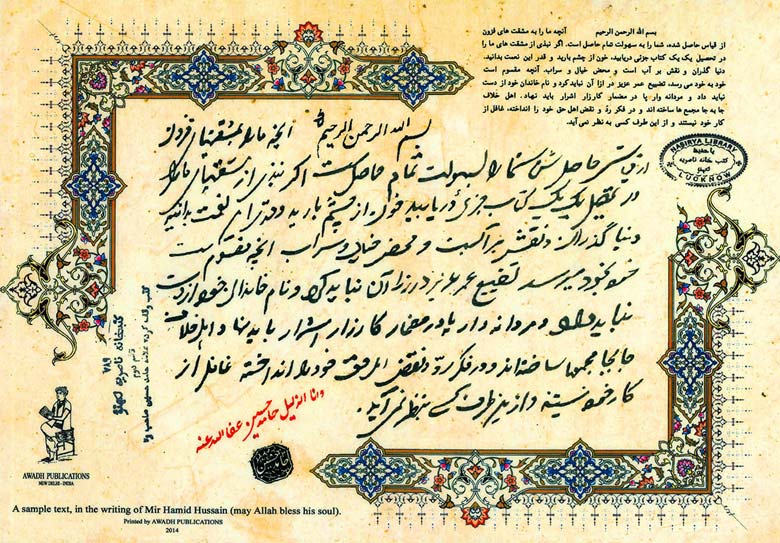 بسم الله الرحمن الرحیم آنچه ما را به مشقت های فزون
از قیاس حاصل شده، شما را به سهولت تمام حاصل است. اگر نبذی از مشقت های ما را
در تحصیل یک یک کتاب جزئی دریابید، خون از چشم بارید و قدر این نعمت بدانید.
دنیا گذران و نقش بر آب است و محض خیال و سراب. آنچه مقسوم است
خود به خود می رسد. تضییع عمر عزیز در ازا آن نباید کرد و نام خاندان خود از دست
نباید داد و مردانه وار پا در مضمار کارزار اشرار باید نهاد. اهل خلاف
جا به جا مجمع ها ساخته اند و در فکر ردّ و نقض اهل حق خود را انداخته، غافل از
کار خود نیستند و از این طرف کسی به نظر نمی آید.
NASIRYA LIBRARY
یا حفیظ
کتب خانه ناصریه
لکهنؤ
LUCKNOW
بسم الله الرحمن الرحیم آنچه ما را بمشقتهای فزون از
از قیاس حاصل شده شما را بسهولت تمام حاصل است اگر نبذی از مشقتهای ما را
در تحصیل یک یک کتاب جزئی دریابید خون از چشم بارید و قدر این نعمت بدانید
دنیا گذران و نقش بر آبست و محض خیال و سراب آنچه مقسوم است
خود بخود میرسد تضییع عمر عزیز در ازا آن نباید کرد و نام خاندان خود از دست
نباید داد و مردانه وار پا در مضمار کارزار اشرار باید نهاد اهل خلاف
جابجا مجمعها ساخته اند و در فکر ردّ و نقض اهل حق خود را انداخته غافل از
کار خود نیستند و از ین طرف کسی بنظر نمی آید.
وانا الذلیل حامد حسین عفا الله عنه
کتبخانه ناصریه لکهنؤ
۷۸۹
AWADH PUBLICATIONS
NEW DELHI - INDIA
A sample text, in the writing of Mir Hamid Hussain (may Allah bless his soul).
Printed by AWADH PUBLICATIONS
2014